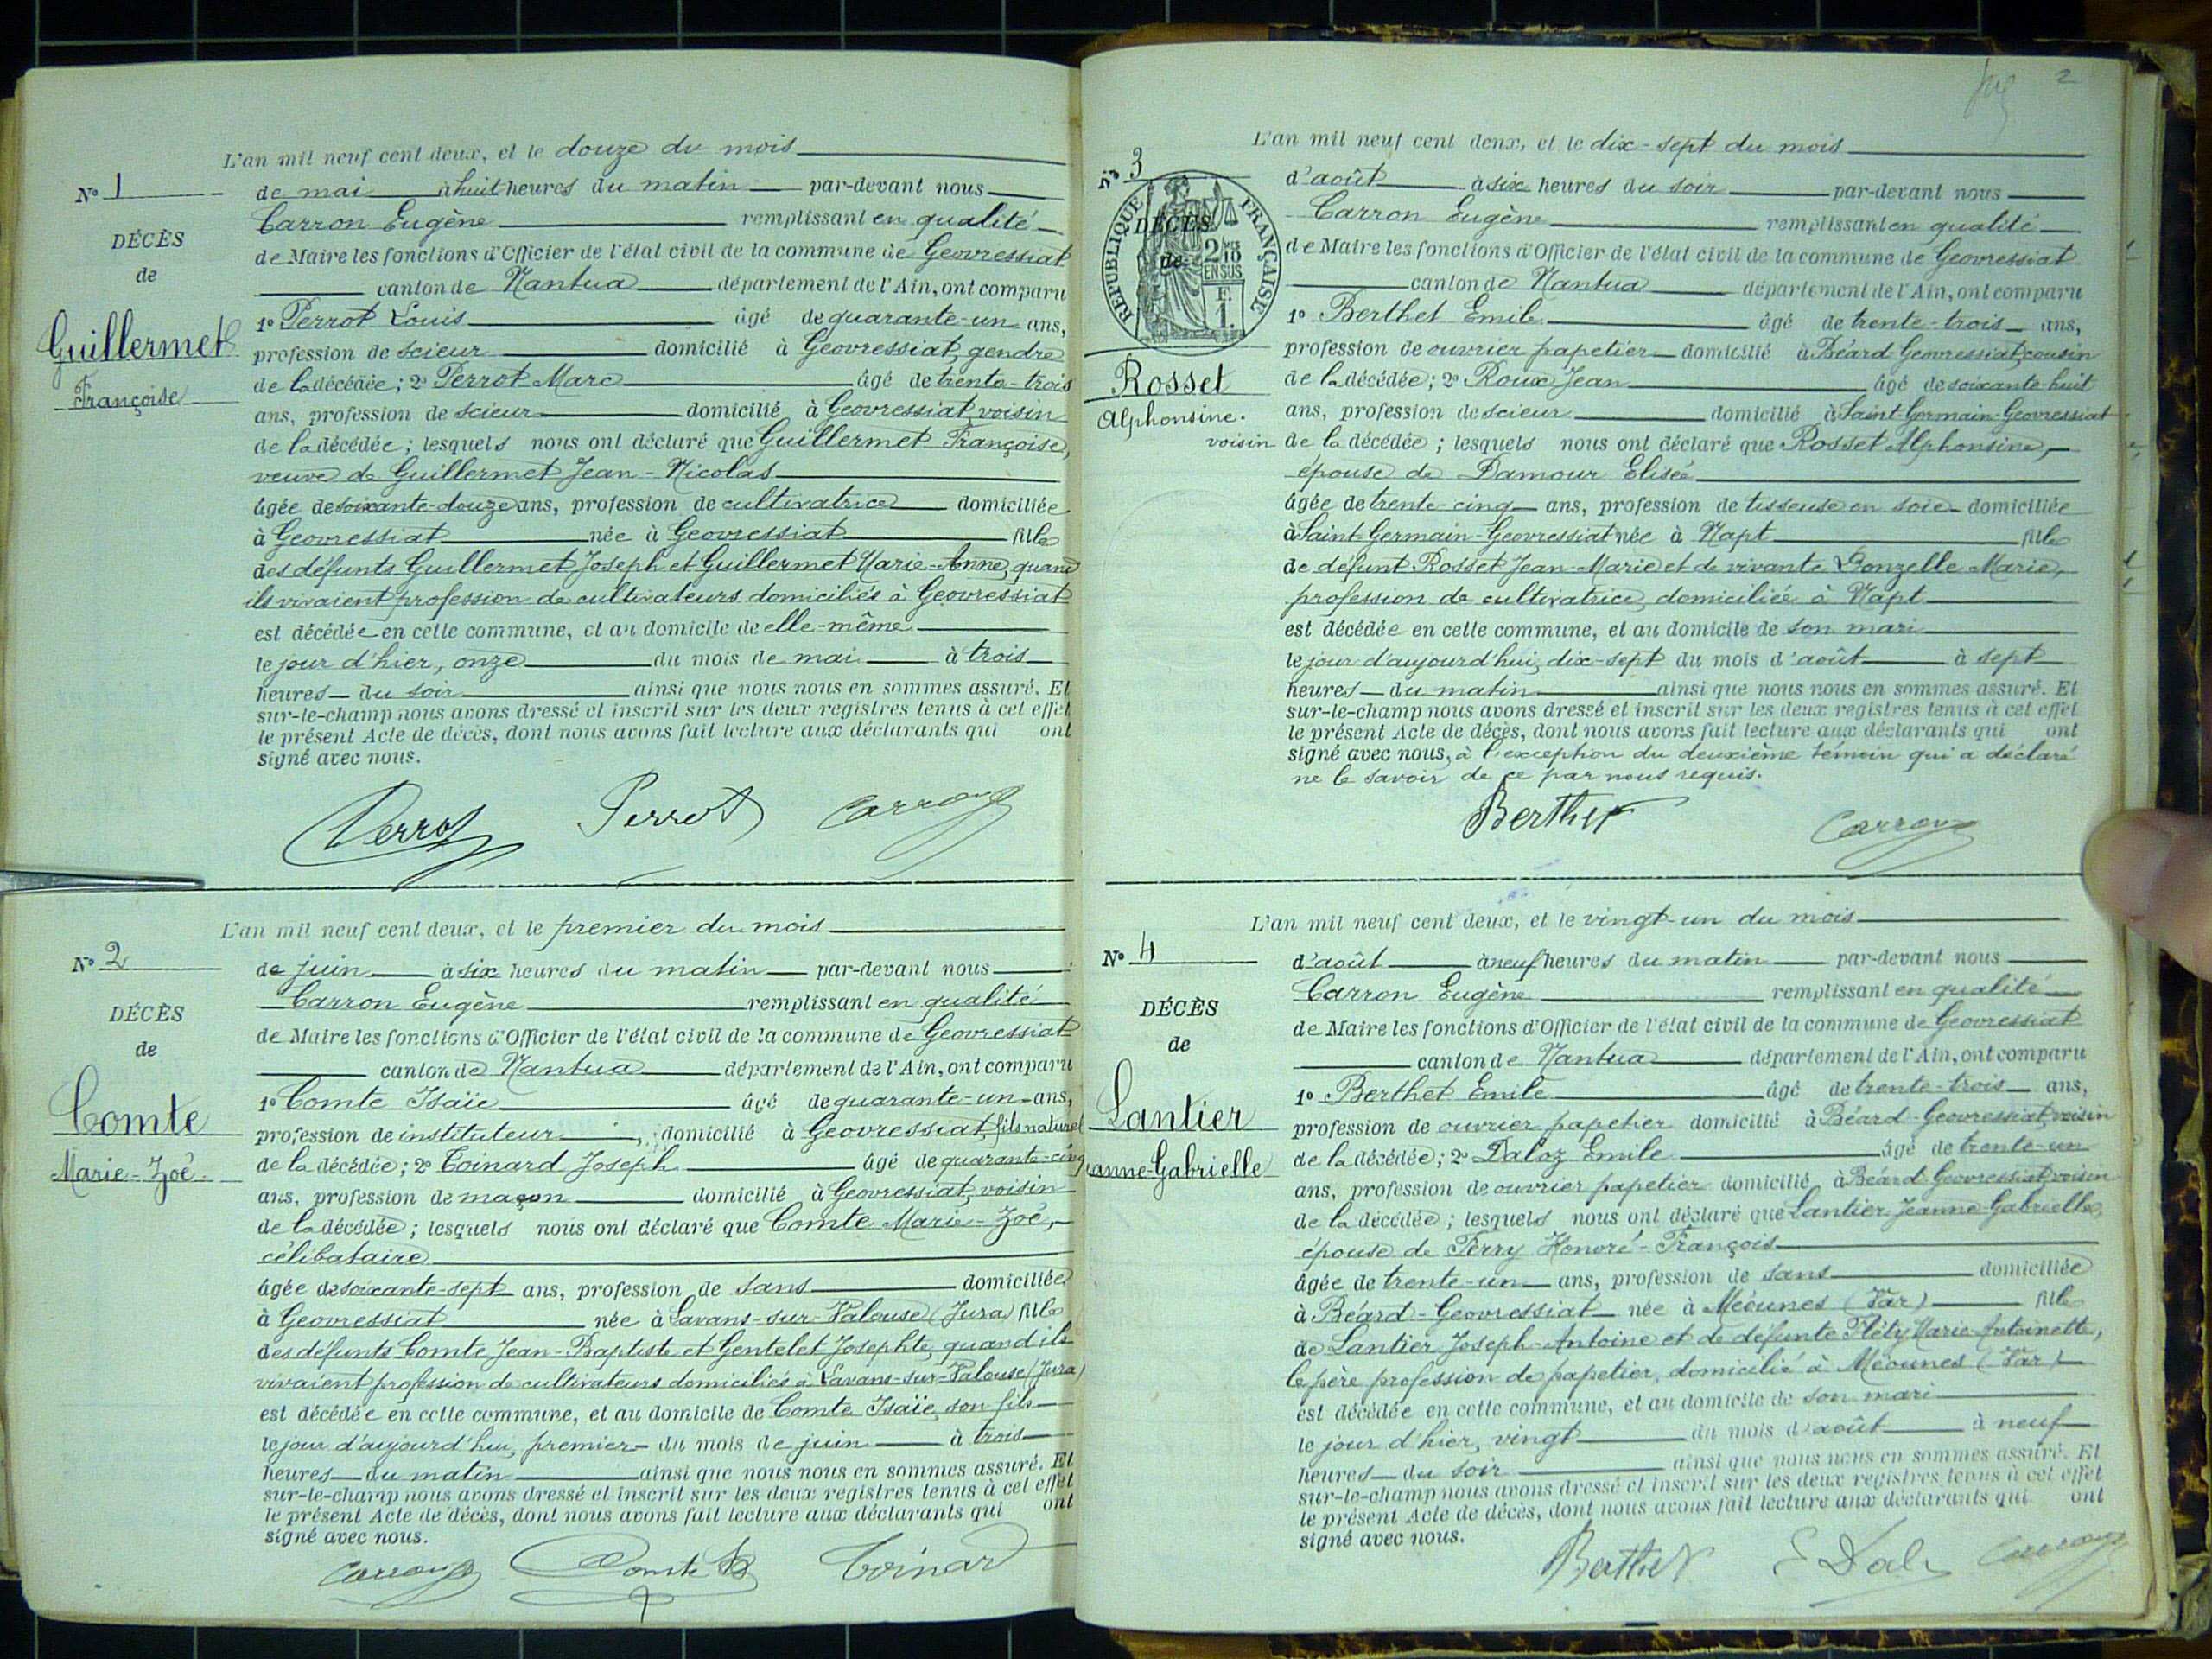 L'an mil neuf cent deux, et le douze du mois
N° 1
de mai à huit heures du matin par-devant nous
Carron Eugène remplissant en qualité
DÉCÈS
de Maire les fonctions d'Officier de l'état civil de la commune de Geovressiat
de
canton de Nantua département de l'Ain, ont comparu
1° Perrot Louis âgé de quarante-un ans,
Guillermet
profession de scieur domicilié à Geovressiat, gendre
de la décédée; 2° Perrot Marc âgé de trente-trois
Françoise
ans, profession de scieur domicilié à Geovressiat, voisin
de la décédée; lesquels nous ont déclaré que Guillermet Françoise,
veuve de Guillermet Jean-Nicolas
âgée de soixante-douze ans, profession de cultivatrice domiciliée
à Geovressiat née à Geovressiat fille
des défunts Guillermet Joseph et Guillermet Marie-Anne, quand
ils vivaient profession de cultivateurs domiciliés à Geovressiat
est décédée en cette commune, et au domicile de elle-même
le jour d'hier, onze du mois de mai à trois
heures du soir ainsi que nous nous en sommes assuré. Et
sur-le-champ nous avons dressé et inscrit sur les deux registres tenus à cet effet
le présent Acte de décès, dont nous avons fait lecture aux déclarants qui ont
signé avec nous.
Perrot Perrot Carron
L'an mil neuf cent deux, et le premier du mois
N° 2
de juin à six heures du matin par-devant nous
Carron Eugène remplissant en qualité
DÉCÈS
de Maire les fonctions d'Officier de l'état civil de la commune de Geovressiat
de
canton de Nantua département de l'Ain, ont comparu
1° Comte Isaïe âgé de quarante-un ans,
Comte
profession de instituteur, domicilié à Geovressiat, fils naturel
de la décédée; 2° Coinard Joseph âgé de quarante-cinq
Marie-Zoé
ans, profession de maçon domicilié à Geovressiat, voisin
de la décédée; lesquels nous ont déclaré que Comte Marie-Zoé,
célibataire
âgée de soixante-sept ans, profession de sans domiciliée
à Geovressiat née à Lavans-sur-Valouse (Jura) fille
des défunts Comte Jean-Baptiste et Gentelet Josephte, quand ils
vivaient profession de cultivateurs domiciliés à Lavans-sur-Valouse (Jura)
est décédée en cette commune, et au domicile de Comte Isaïe, son fils
le jour d'aujourd'hui, premier du mois de juin à trois
heures du matin ainsi que nous nous en sommes assuré. Et
sur-le-champ nous avons dressé et inscrit sur les deux registres tenus à cet effet
le présent Acte de décès, dont nous avons fait lecture aux déclarants qui ont
signé avec nous.
Carron Comte Coinard
2
L'an mil neuf cent deux, et le dix-sept du mois
N° 3
d'août à six heures du soir par-devant nous
Carron Eugène remplissant en qualité
DÉCÈS
de Maire les fonctions d'Officier de l'état civil de la commune de Geovressiat
de
RÉPUBLIQUE FRANÇAISE
2/10 EN SUS
F. 1.
canton de Nantua département de l'Ain, ont comparu
1° Berthet Emile âgé de trente-trois ans,
profession de ouvrier papetier domicilié à Béard Geovressiat, cousin
Rosset
de la décédée; 2° Roux Jean âgé de soixante-huit
Alphonsine.
ans, profession de scieur domicilié à Saint-Germain-Geovressiat
voisin de la décédée; lesquels nous ont déclaré que Rosset Alphonsine,
épouse de Damour Elisée
âgée de trente-cinq ans, profession de tisseuse en soie domiciliée
à Saint-Germain-Geovressiat née à Napt fille
de défunt Rosset Jean-Marie et de vivante Gonzelle Marie,
profession de cultivatrice, domiciliée à Napt
est décédée en cette commune, et au domicile de son mari
le jour d'aujourd'hui, dix-sept du mois d'août à sept
heures du matin ainsi que nous nous en sommes assuré. Et
sur-le-champ nous avons dressé et inscrit sur les deux registres tenus à cet effet
le présent Acte de décès, dont nous avons fait lecture aux déclarants qui ont
signé avec nous, à l'exception du deuxième témoin qui a déclaré
ne le savoir de ce par nous requis.
Berthet Carron
L'an mil neuf cent deux, et le vingt-un du mois
N° 4
d'août à neuf heures du matin par-devant nous
Carron Eugène remplissant en qualité
DÉCÈS
de Maire les fonctions d'Officier de l'état civil de la commune de Geovressiat
de
canton de Nantua département de l'Ain, ont comparu
1° Berthet Emile âgé de trente-trois ans,
Lantier
profession de ouvrier papetier domicilié à Béard-Geovressiat, voisin
de la décédée; 2° Daloz Emile âgé de trente-un
eanne-Gabrielle
ans, profession de ouvrier papetier domicilié à Béard Geovressiat, voisin
de la décédée; lesquels nous ont déclaré que Lantier Jeanne-Gabrielle,
épouse de Perry Honoré-François
âgée de trente-un ans, profession de sans domiciliée
à Béard-Geovressiat née à Méounes (Var) fille
de Lantier Joseph-Antoine et de défunte Fléty Marie-Antoinette,
le père profession de papetier, domicilié à Méounes (Var)
est décédée en cette commune, et au domicile de son mari
le jour d'hier, vingt du mois d'août à neuf
heures du soir ainsi que nous nous en sommes assuré. Et
sur-le-champ nous avons dressé et inscrit sur les deux registres tenus à cet effet
le présent Acte de décès, dont nous avons fait lecture aux déclarants qui ont
signé avec nous.
Berthet E Dal Carron